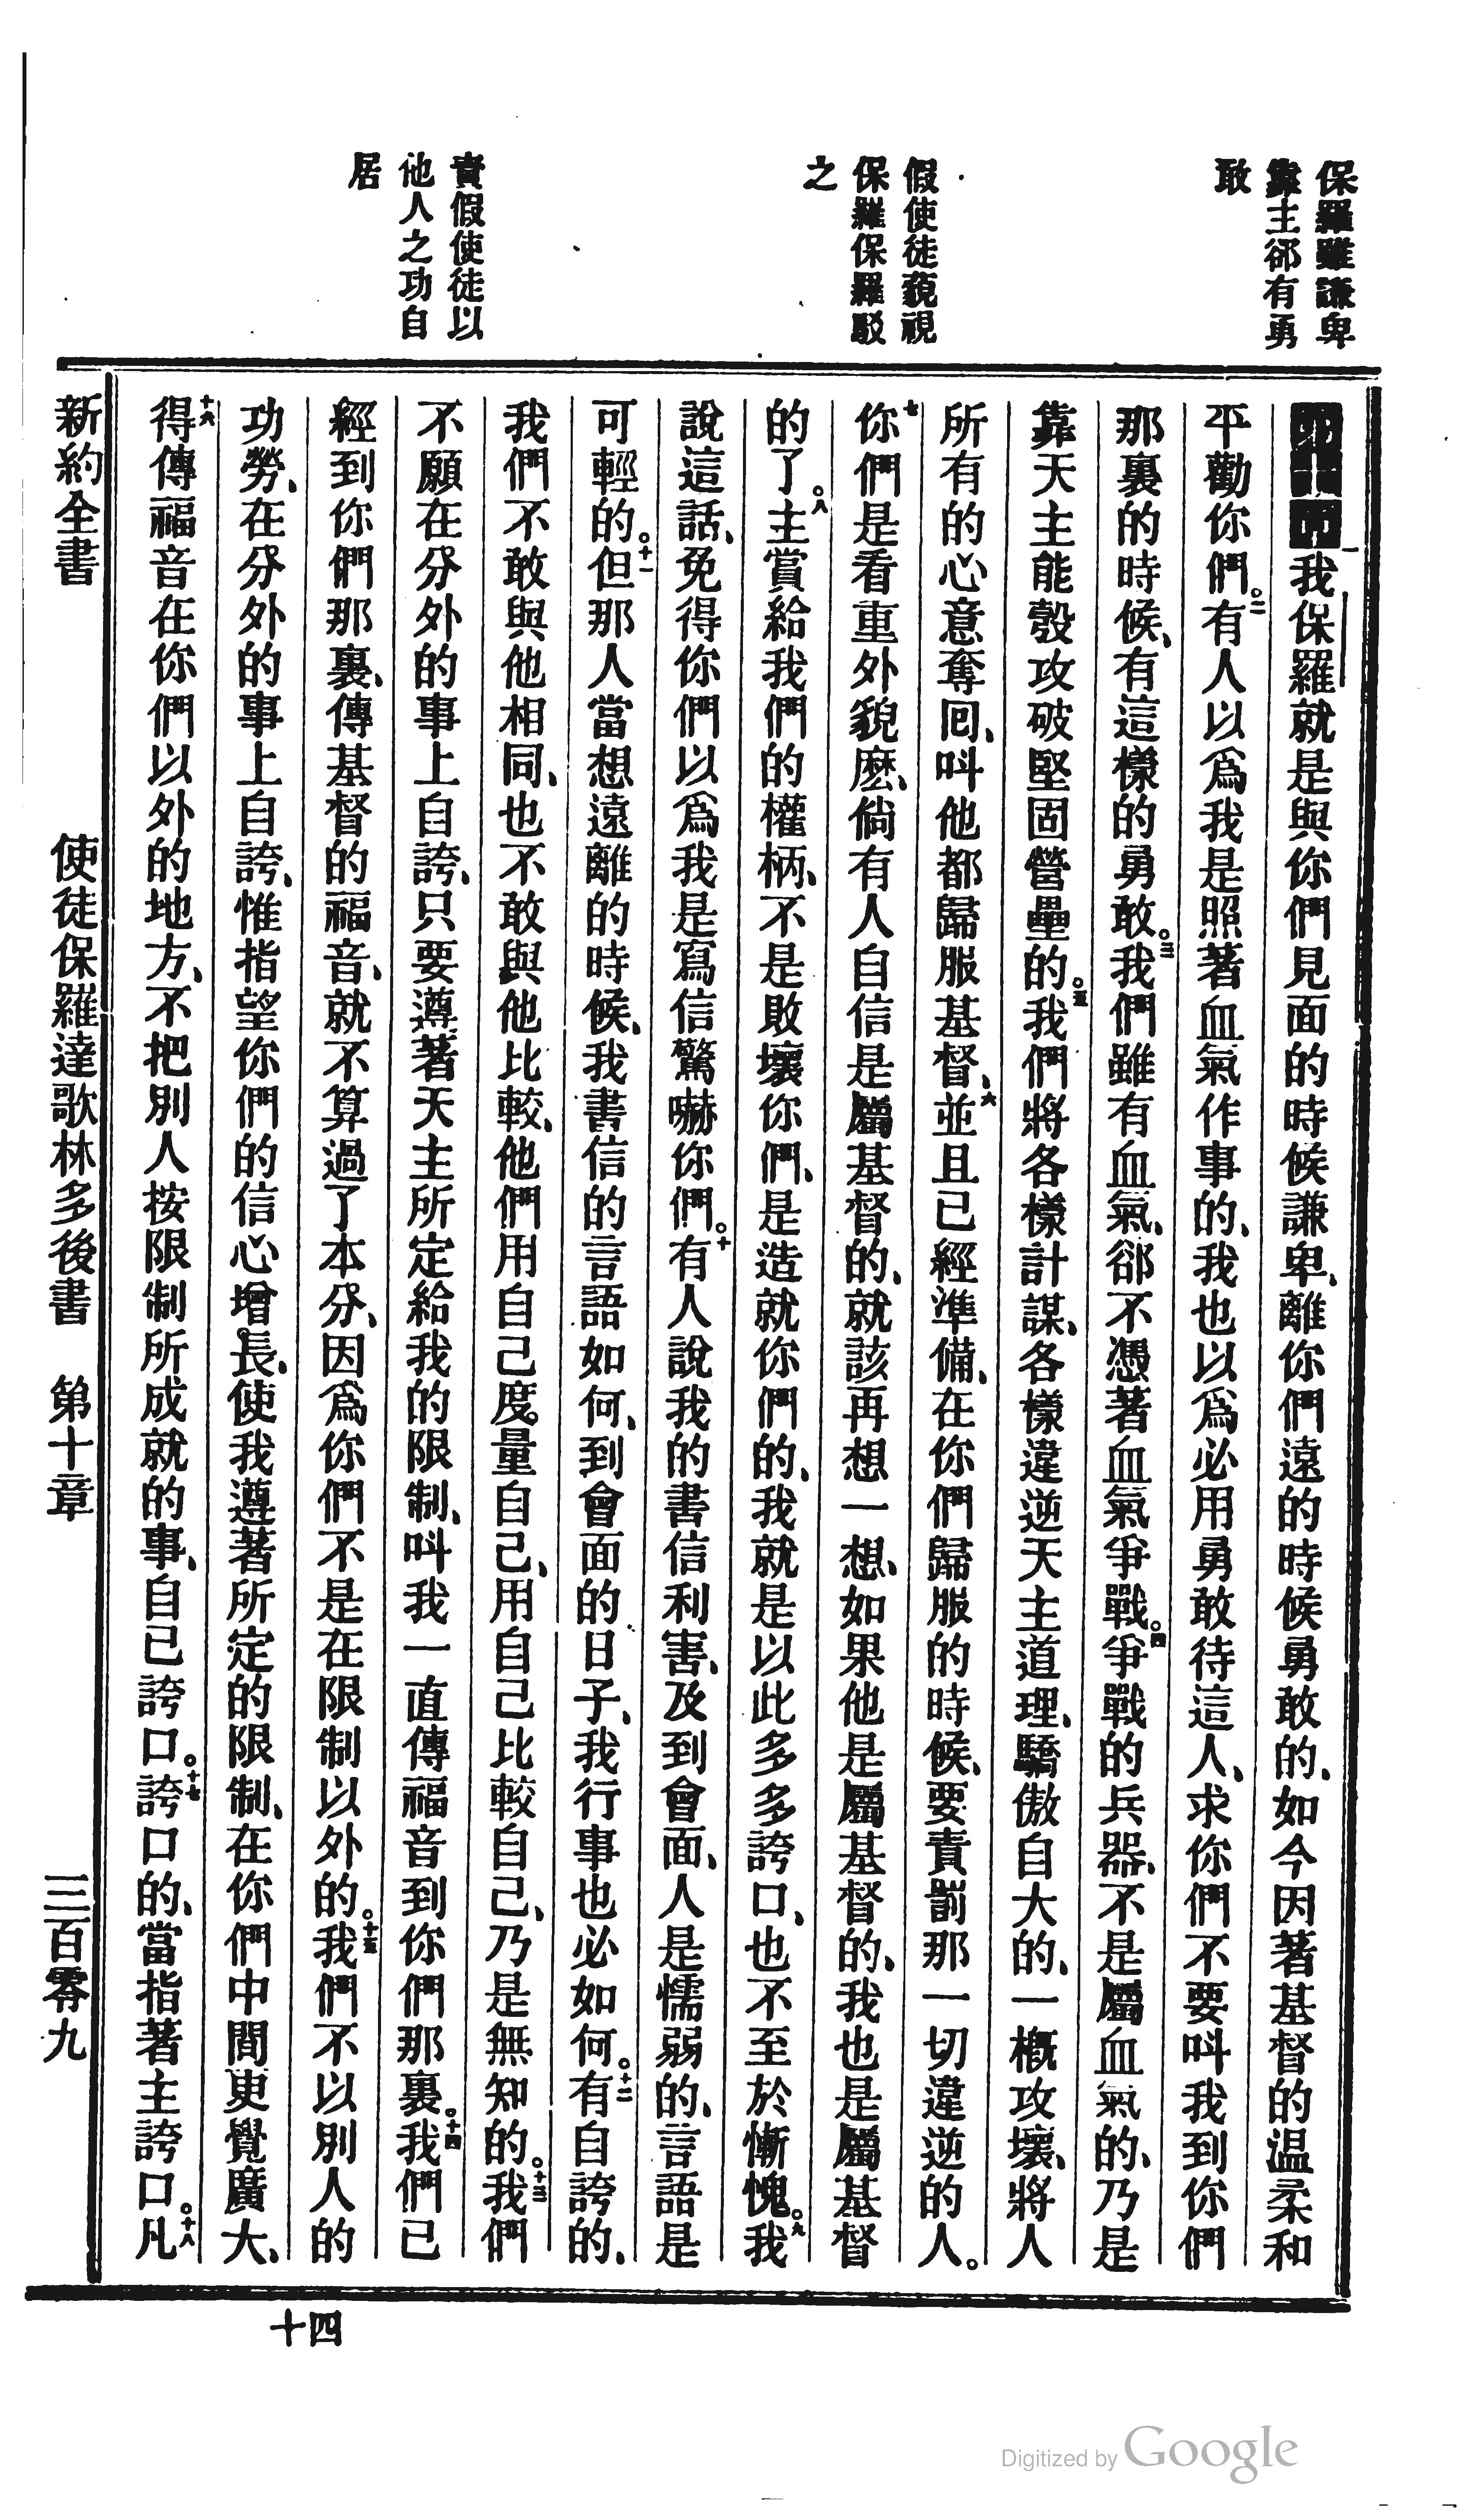 保羅雖謙卑
靠主郤有勇
敢
假使徒藐視
保羅保羅駁
之
責假使徒以
他人之功自
居
一我保羅就是與你們見面的時候謙卑、離你們遠的時候勇敢的、如今因著基督的温柔和
平勸你們。二有人以爲我是照著血氣作事的、我也以爲必用勇敢待這人、求你們不要呌我到你們
那裏的時候、有這樣的勇敢。三我們雖有血氣、郤不憑著血氣爭戰。四爭戰的兵器、不是屬血氣的、乃是
靠天主能彀攻破堅固營壘的。五我們將各樣計謀、各樣違逆天主道理、驕傲自大的、一概攻壞、將人
所有的心意奪囘、呌他都歸服基督、六並且已經準備、在你們歸服的時候、要責罰那一切違逆的人。
七你們是看重外貌麽、倘有人自信是屬基督的、就該再想一想、如果他是屬基督的、我也是屬基督
的了。八主賞給我們的權柄、不是敗壞你們、是造就你們的、我就是以此多多誇口、也不至於慚愧。九我
說這話、免得你們以爲我是寫信驚嚇你們。十有人說我的書信利害、及到會面、人是懦弱的、言語是
可輕的。十一但那人當想遠離的時候、我書信的言語如何、到會面的日子、我行事也必如何。十二有自誇的、
我們不敢與他相同、也不敢與他比較、他們用自己度量自己、用自己比較自己、乃是無知的。十三我們
不願在分外的事上自誇、只要遵著天主所定給我的限制、呌我一直傳福音到你們那裏。十四我們已
經到你們那裏、傳基督的福音、就不算過了本分、因爲你們不是在限制以外的。十五我們不以別人的
功勞、在分外的事上自誇、惟指望你們的信心增長、使我遵著所定的限制、在你們中間更覺廣大、
十六得傳福音在你們以外的地方、不把別人按限制所成就的事、自己誇口。十七誇口的、當指著主誇口。十八凡
新約全書 使徒保羅達歌林多後書 第十章 三百零九
十四
Digitized by Google